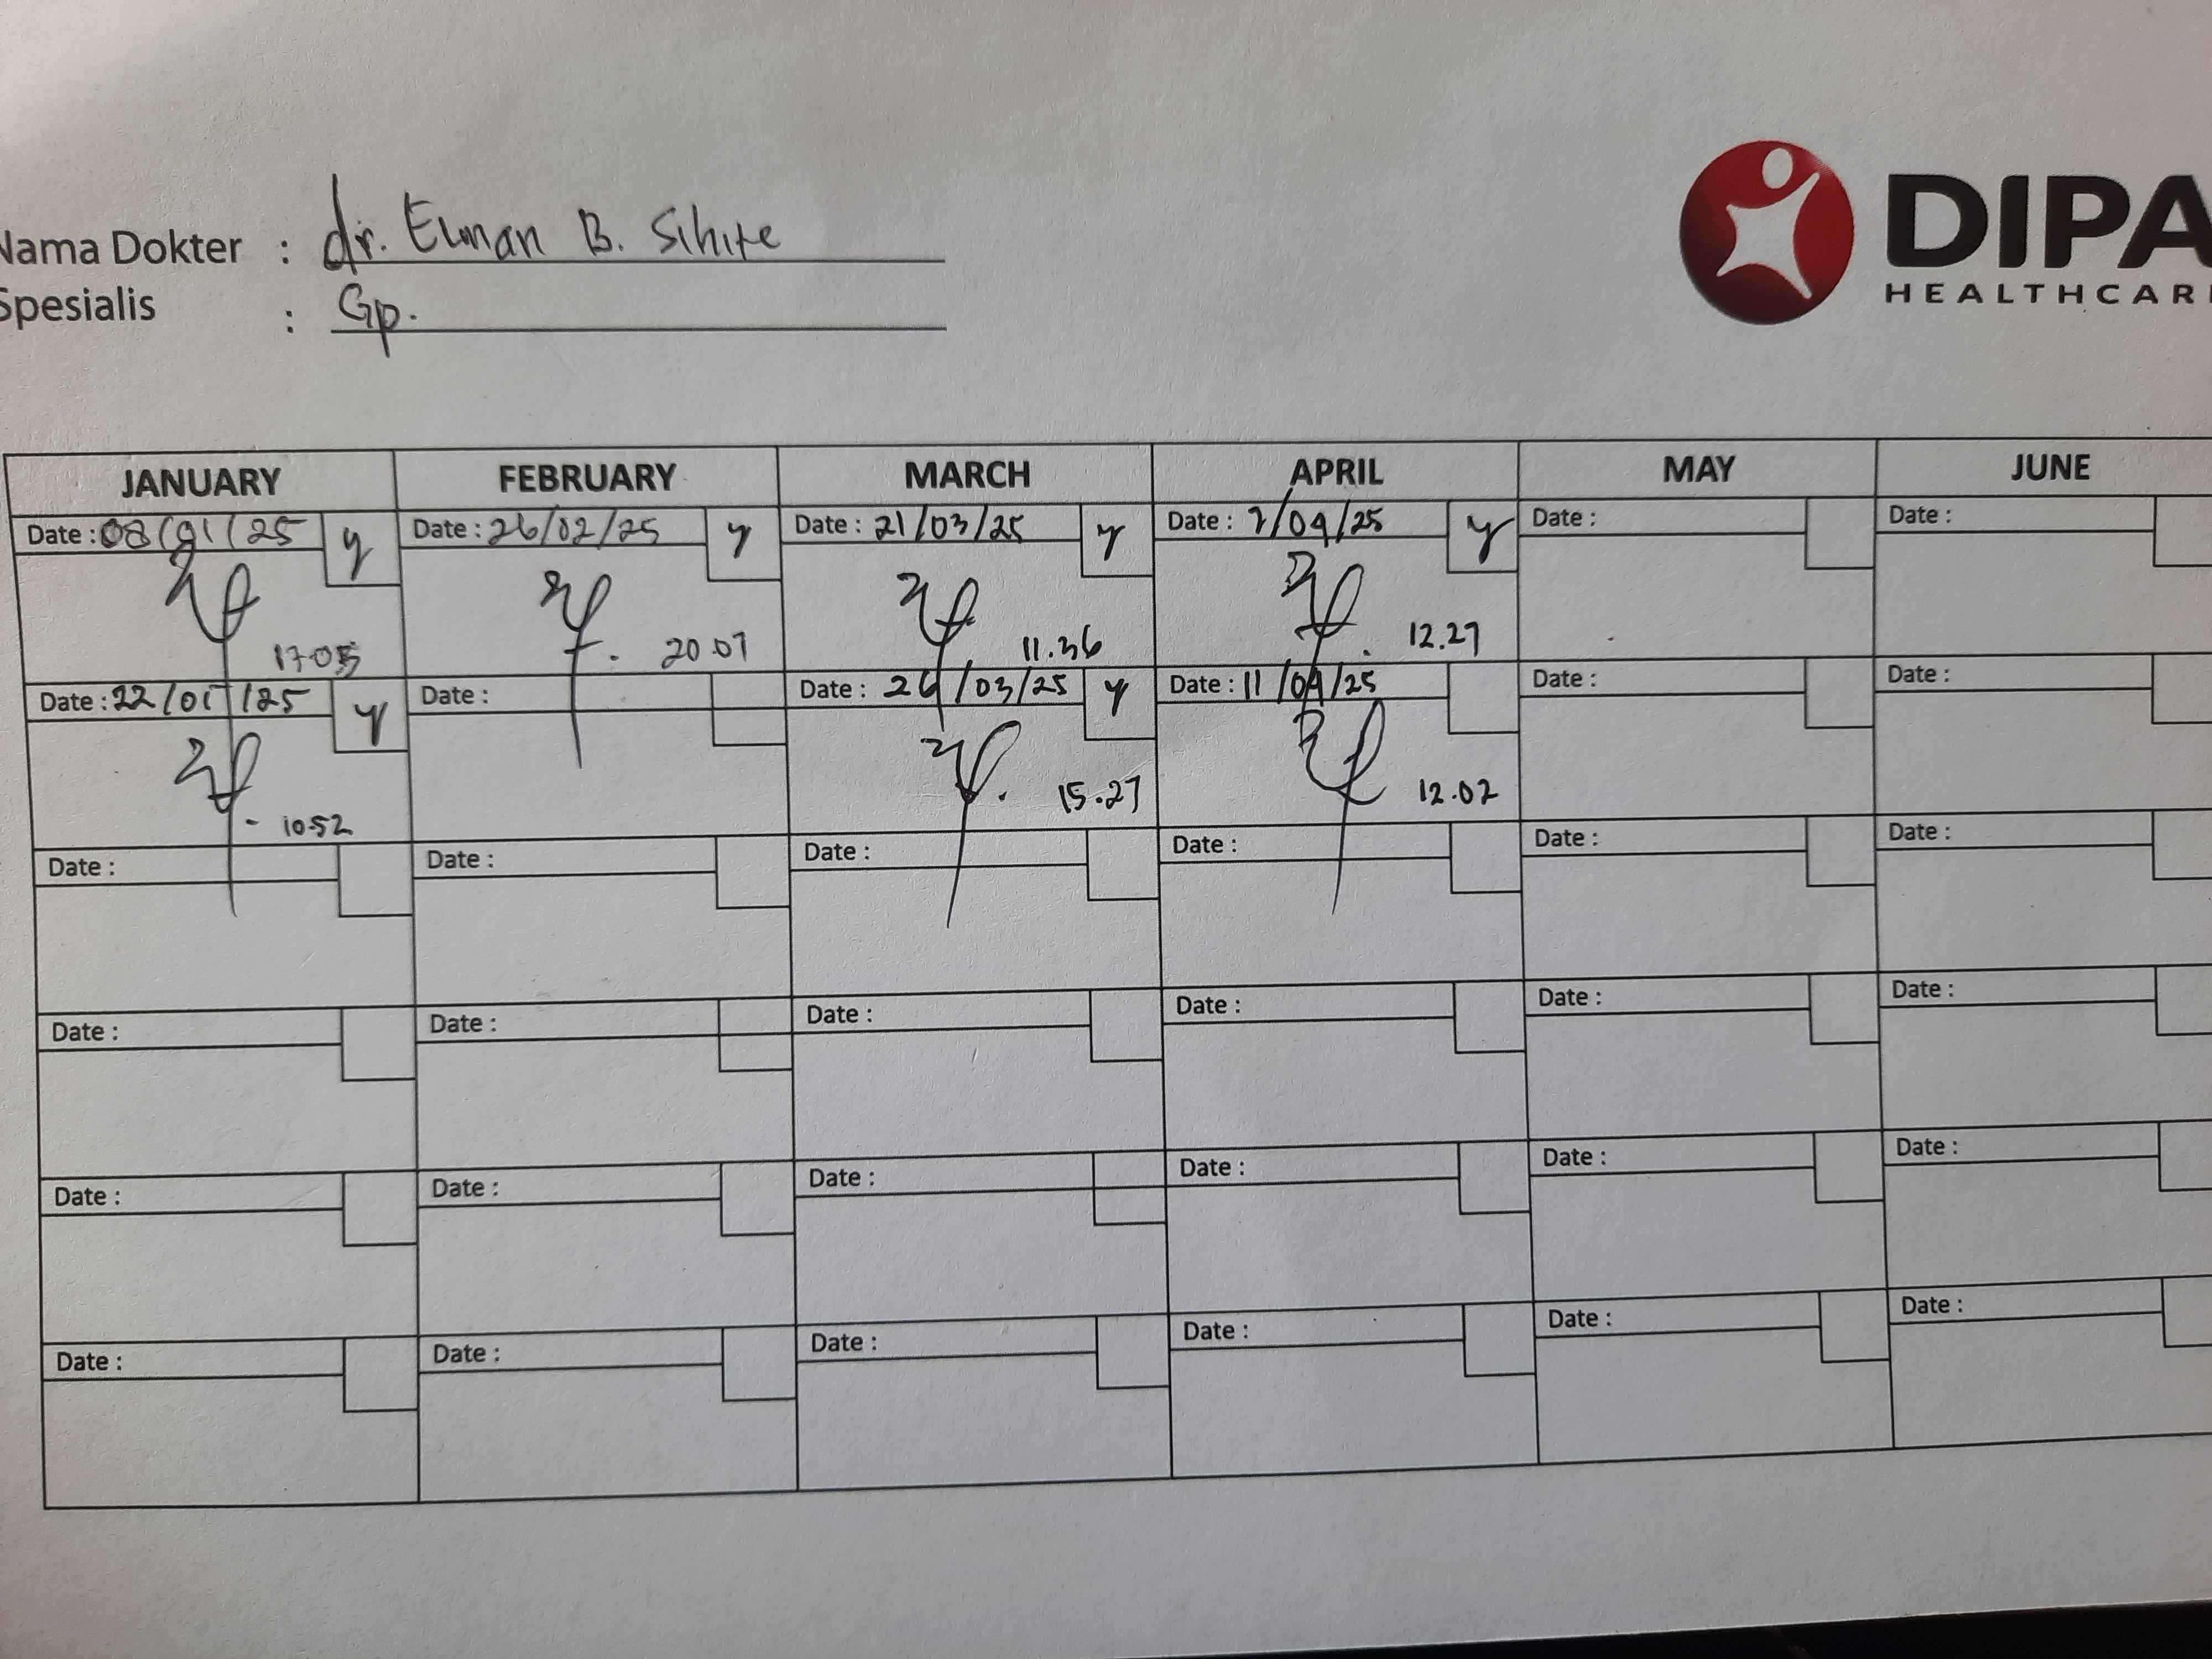 Nama Dokter : dr. Elman B. Sihite
Spesialis : Gp.
DIPA
HEALTHCAR
JANUARY FEBRUARY MARCH APRIL MAY JUNE
Date : 08/01/25 y Date : 26/02/25 y Date : 21/03/25 y Date : 7/04/25 y Date : Date :
17.05 20.07 11.36 12.27
Date : 22/01/25 y Date : Date : 26/03/25 y Date : 11/04/25 Date : Date :
10.52 15.27 12.02
Date : Date : Date : Date : Date : Date :
Date : Date : Date : Date : Date : Date :
Date : Date : Date : Date : Date : Date :
Date : Date : Date : Date : Date : Date :